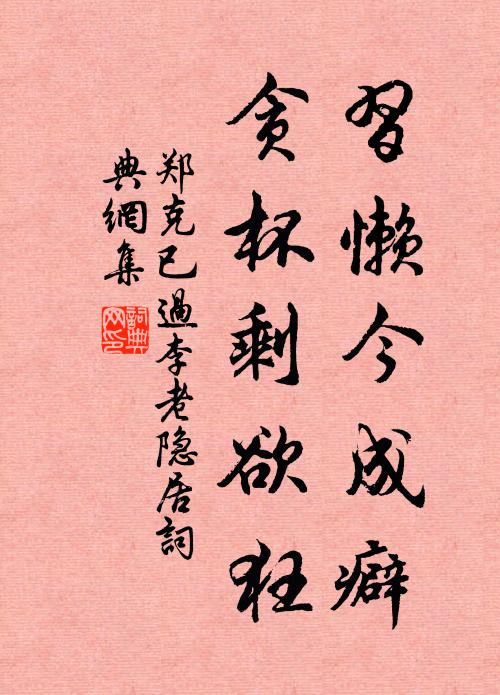 習懒今成癖
貪杯剩欲狂
郑克已過李老隐居詞
典網集
詞典
网印